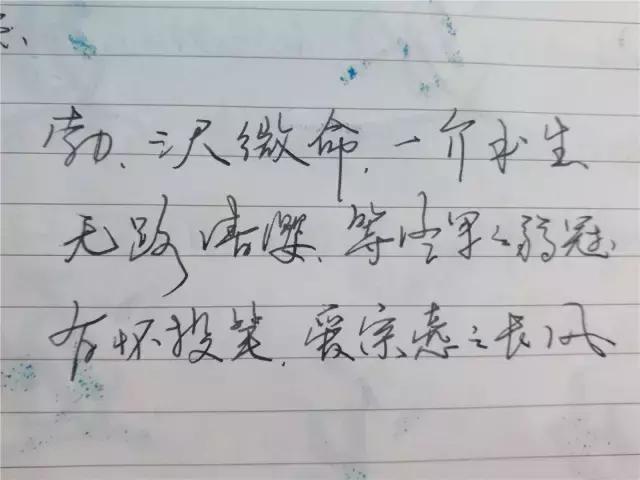 勃，三尺微命，一介书生
无路请缨，等终军之弱冠
有怀投笔，爱宗悫之长风